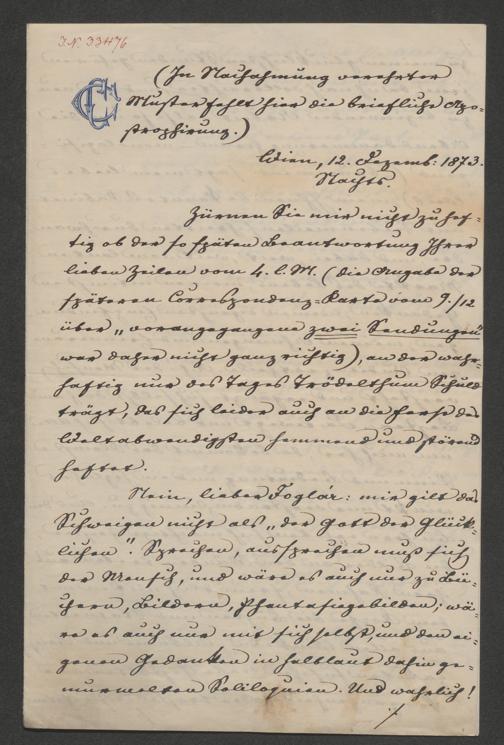 I.N. 33476
(In Nachahmung verehrter
Muster fehlt hier die briefliche Apo-
strophirung.)
Wien, 12. Dezemb. 1873.
Nachts.
Zürnen Sie mir nicht zu hef-
tig ob der so späten Beantwortung Ihrer
lieben Zeilen vom 4. l. M. (die Angabe der
späteren Correspondenz-Karte vom 9./12
über „vorangegangene zwei Sendungen"
war daher nicht ganz richtig), an der wahr-
haftig nur des Tages Trödelthum Schuld
trägt, das sich leider auch an die Ferse des
Weltabwendigsten hemmend und störend
heftet.
Nein, lieber Foglár: mir gilt das
Schweigen nicht als „der Gott der Glück-
lichen". Sprechen, aussprechen muß sich
der Mensch, und wäre es auch nur zu Bü-
chern, Bildern, Phantasiegebilden; wä-
re es auch nur mit sich selbst, und den ei-
genen Gedanken in halblaut dahin ge-
murmelten Soliloquien. Und wahrlich!
./.